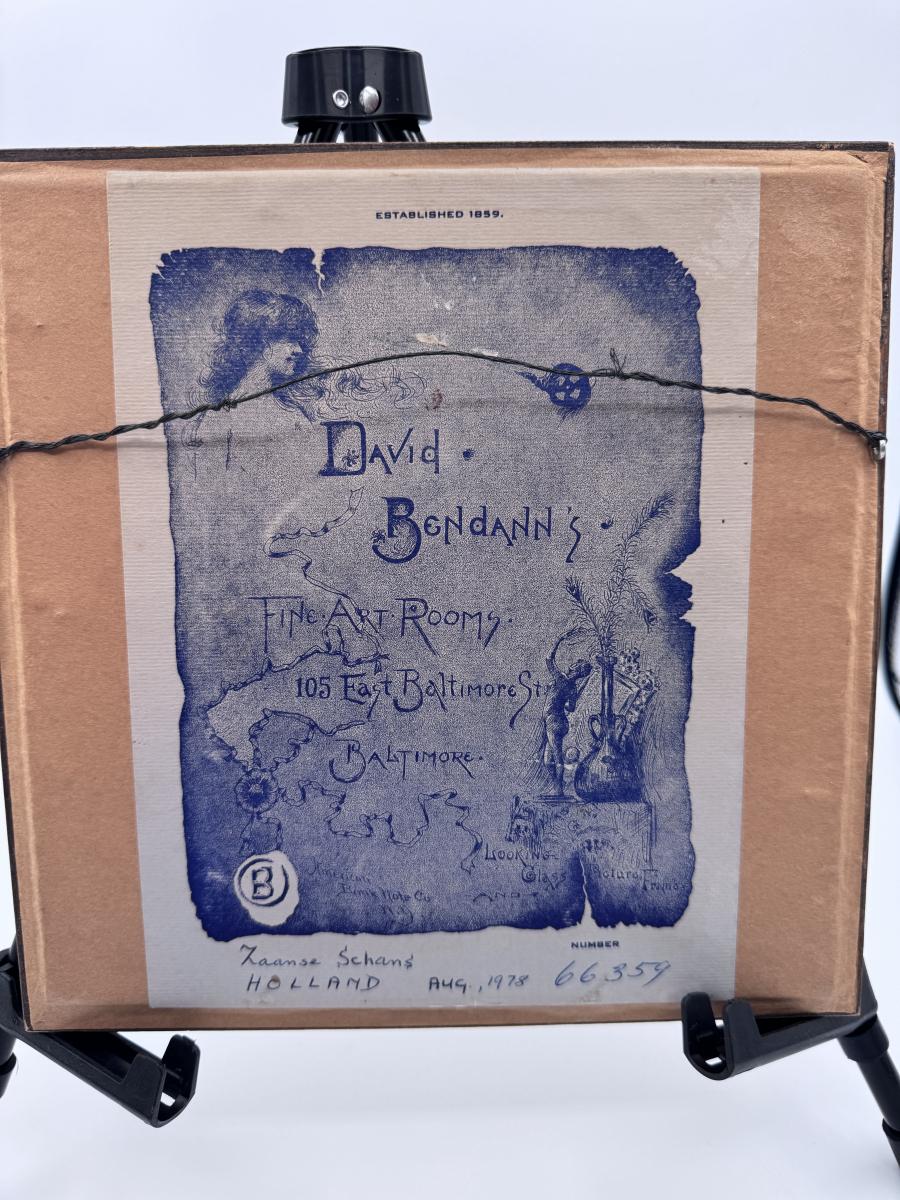 ESTABLISHED 1859.
DAVID
BENDANN'S
FINE ART ROOMS.
105 East Baltimore Str
BALTIMORE.
LOOKING
Glass Picture Frames
AND
B
American
Bank Note Co
N.Y.
NUMBER
Zaanse Schans
HOLLAND AUG., 1978 66359